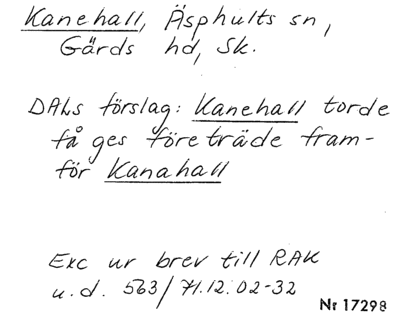 Kanehall, Äsphults sn,
Gärds hd, Sk.
DALs förslag: Kanehall torde
få ges företräde fram-
för Kanahall
Exc ur brev till RAK
u.d. 563/71.12.02-32
Nr 17298